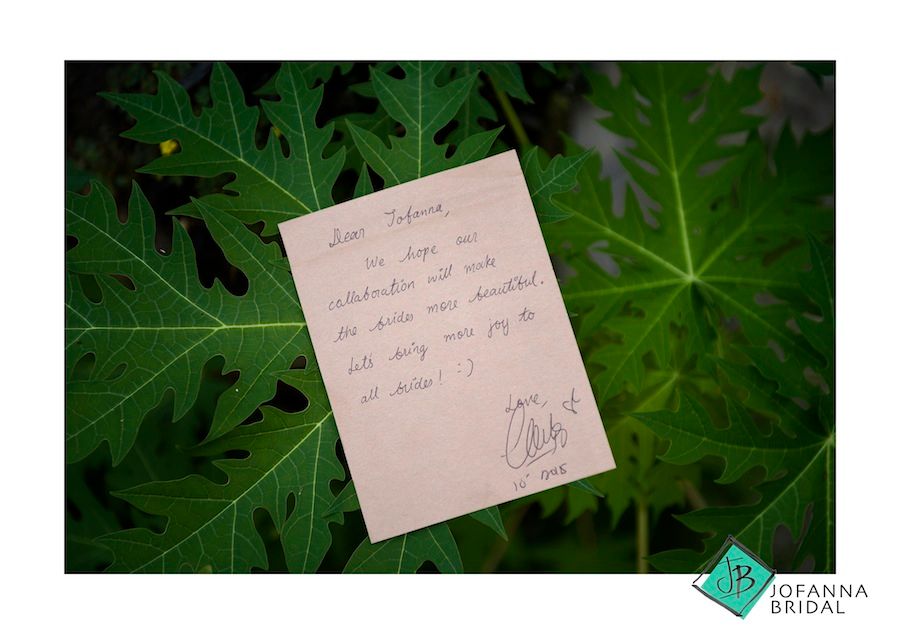 Dear Jofanna,
We hope our
collaboration will make
the brides more beautiful.
Let's bring more joy to
all brides! :)
Love,
JB
JOFANNA
BRIDAL